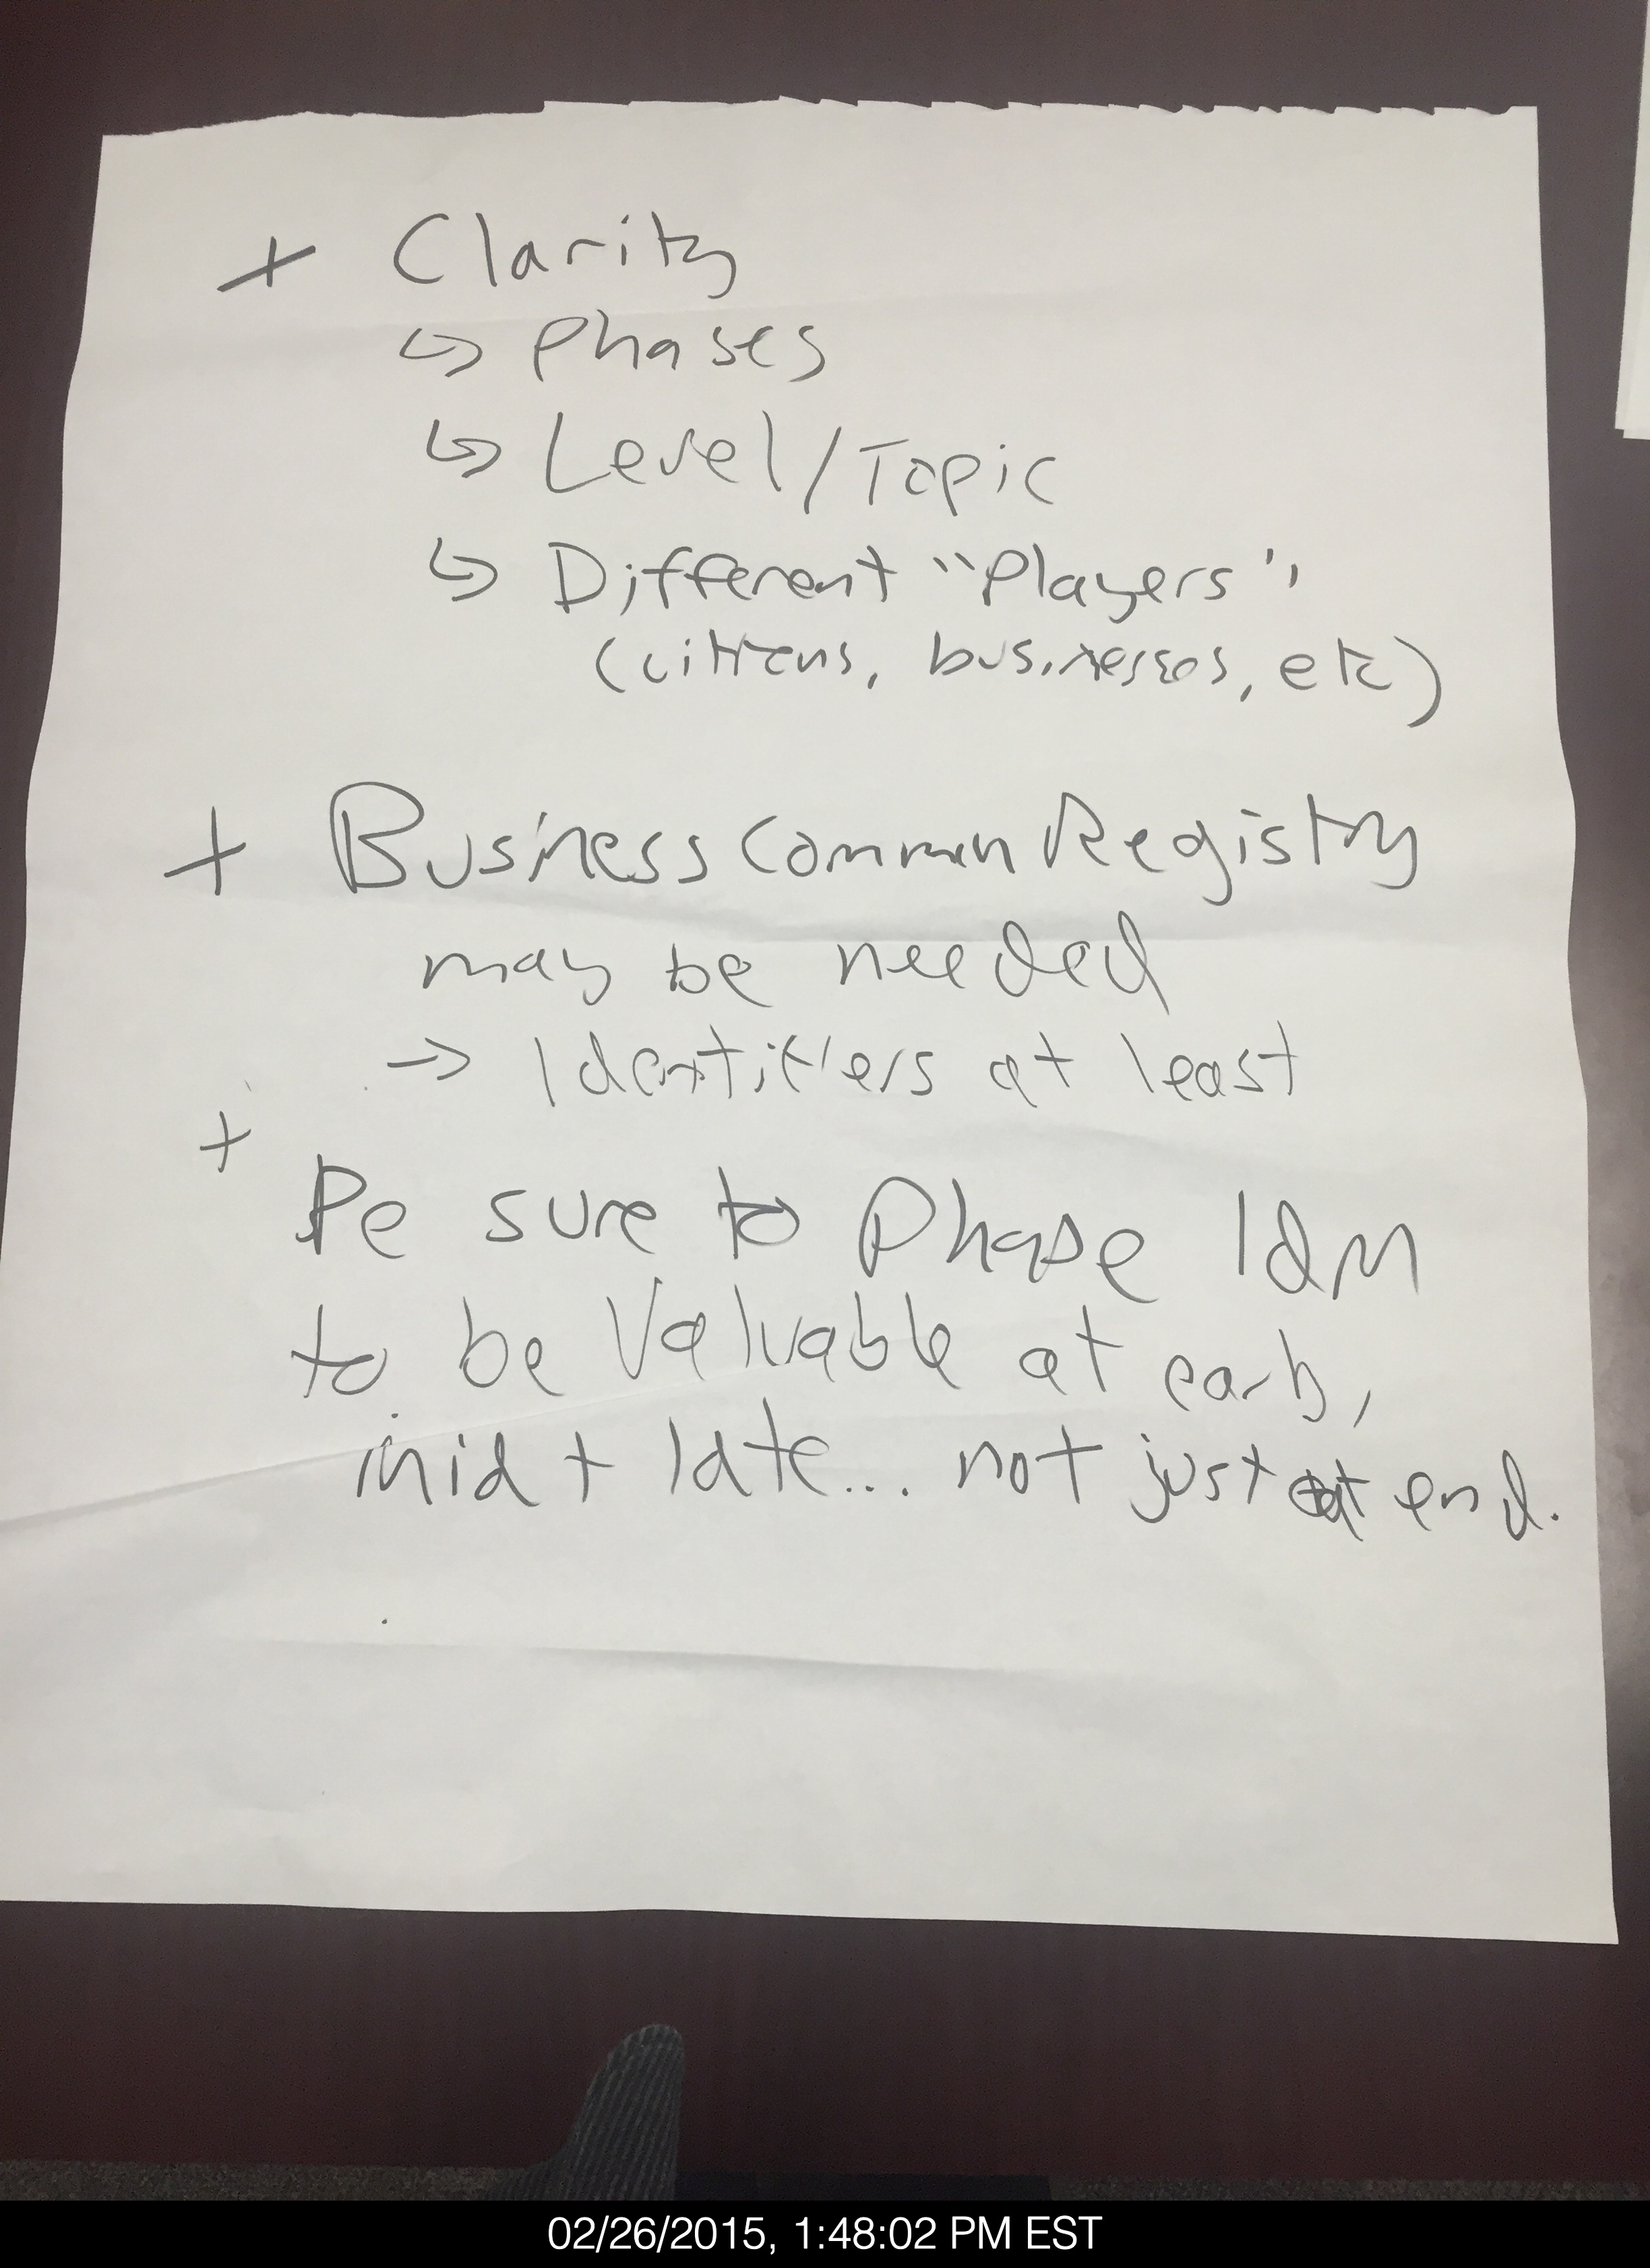 + Clarity
↳ Phases
↳ Level/Topic
↳ Different "Players"
(citizens, businesses, etc)
+ Business Common Registry
may be needed
→ Identifiers at least
+
Be sure to Phase IdM
to be Valuable at early,
mid + late... not just at end.
02/26/2015, 1:48:02 PM EST